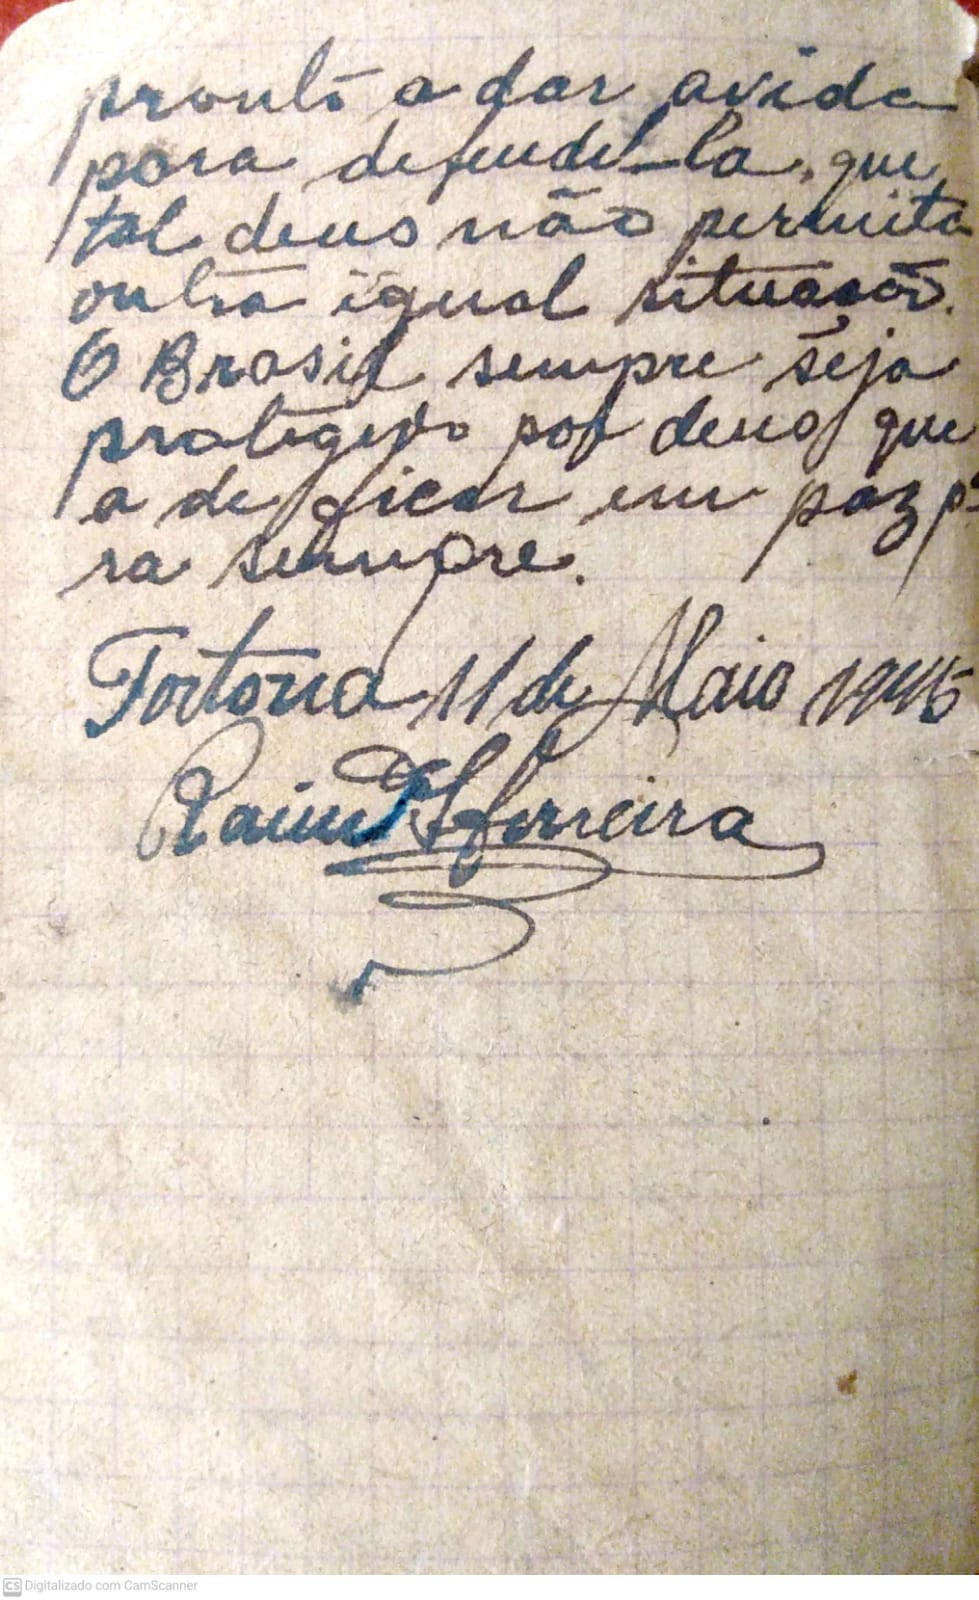 pronto a dar avida
para defendel-la, que
tal deus não permita
outra igual situação.
O Brasil sempre seja
protegido por deus que
a de ficar em paz pa
ra sempre.
Tortona 11 de Maio 1945
Ferreira
CS Digitalizado com CamScanner